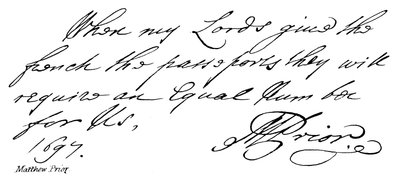 When my Lords give the
french the passeports they will
require an Equal Number
for Us,
1697.
MPrior
Matthew Prior